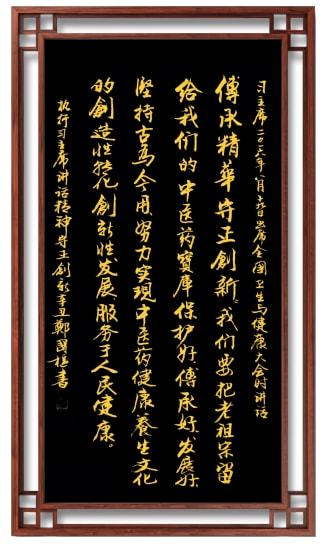 习主席二〇一六年八月十九日出席全国卫生与健康大会时讲话
傳承精華守正創新。我们要把老祖宗留
给我们的中医药寳庫保护好傳承好发展好
堅持古为今用努力实現中医药健康養生文化
的創造性转化創新性发展服务于人民健康。
执行习主席讲话精神守正創新辛丑鄭國樞书